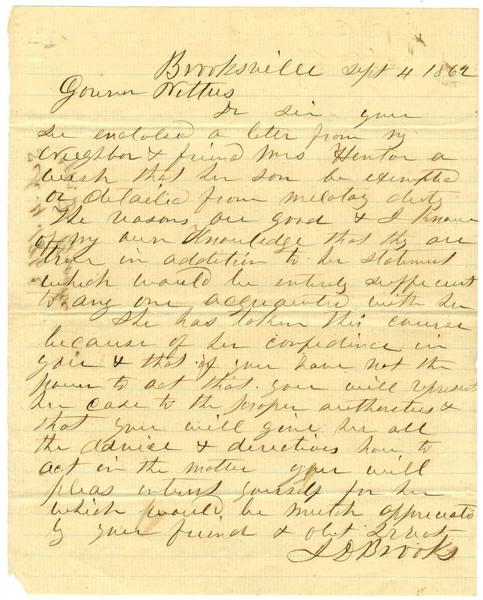 Brooksville Sept 4 1862
Govenor Pettus
Dr Sir your
be enclosed a leter from my
neighbor & friend Mrs Hentor a
wish that her son be exempted
or detailed from melatay duty
The reasons are good & I know
of my own Knowledge that they are
true in addition to her statement
which would be entirely sufficient
to any one acquainted with her
She has taken this course
because of her confidence in
you & that if you have not the
power to act that you will represent
her case to the proper authorities &
that you will give her all
the advice & directions how to
act in the matter you will
pleas intrust yourself for her
which would be much appreciated
by your friend & obt Servt
J D Brooks